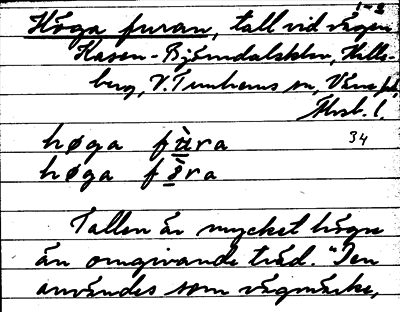 1-3
Höga furan, tall vid vägen
Kasen - Björndalsklev, Halls-
berg, V. Tunhems sn, Väne hd,
Älvsb. l.
34
høga fu̠̇ra
høga fȯ̠ra
Tallen är mycket högre
än omgivande träd. "Den
användes som vägmärke,